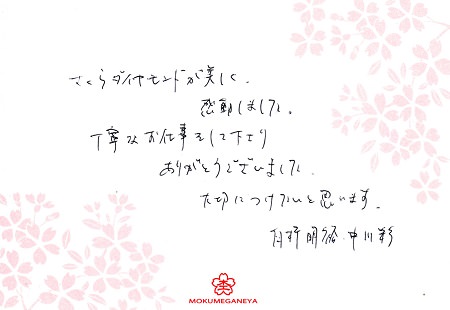 さくらダイヤモンドが美しく、
感動しました。
丁寧なお仕事をして下さり
ありがとうございました。
大切につけたいと思います。
中川
MOKUMEGANEYA